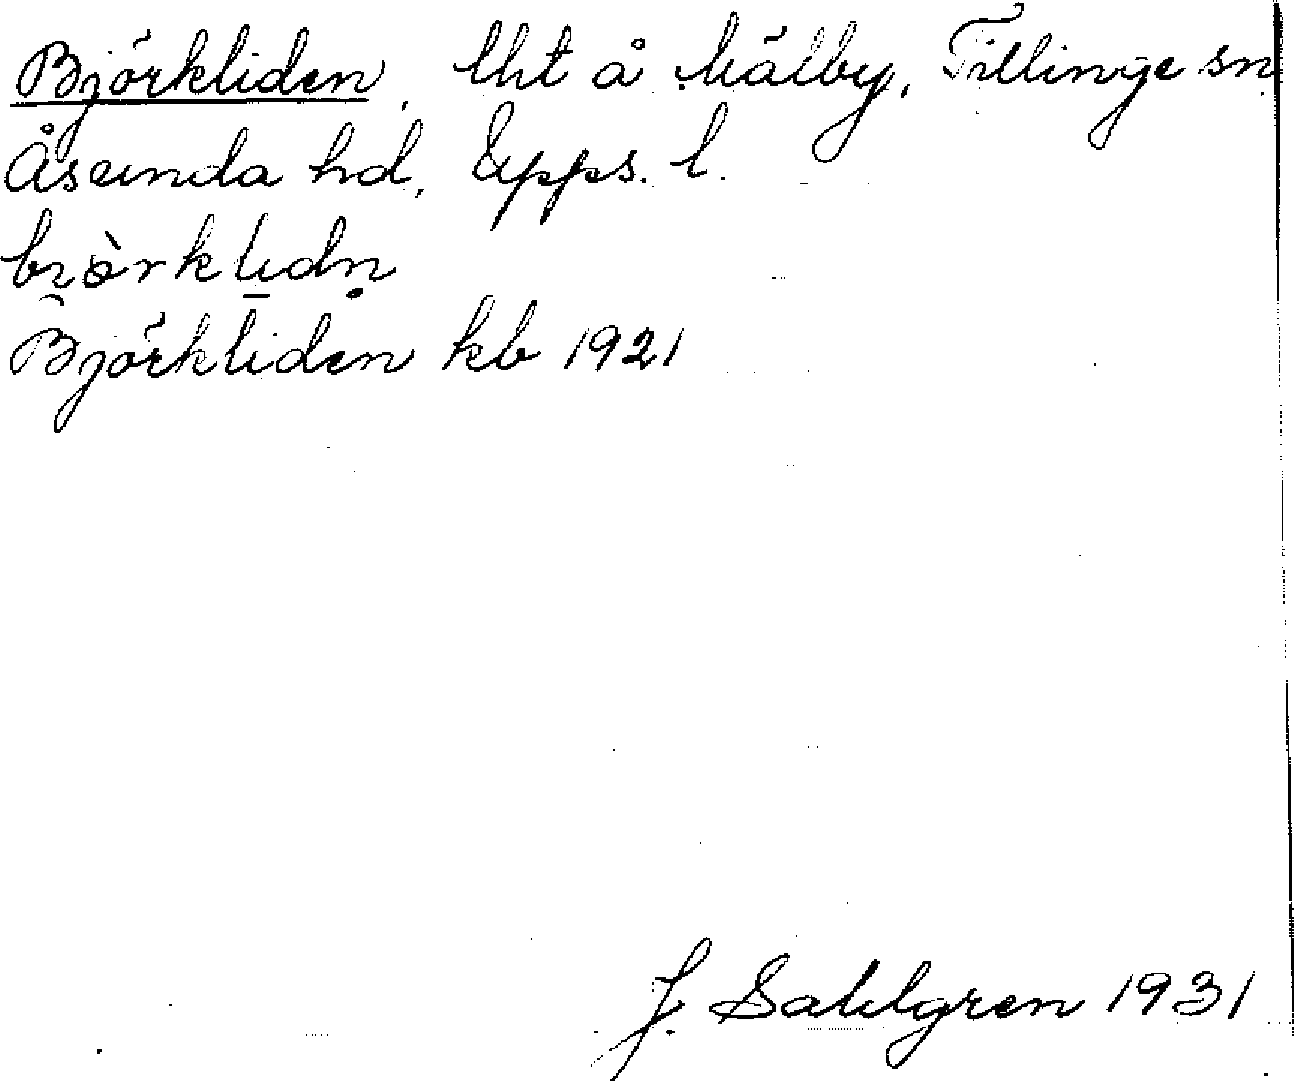 Björkliden, lht å Mälby, Tillinge sn
Åsunda hd, Upps. l.
Björkliden kb 1921
J. Sahlgren 1931